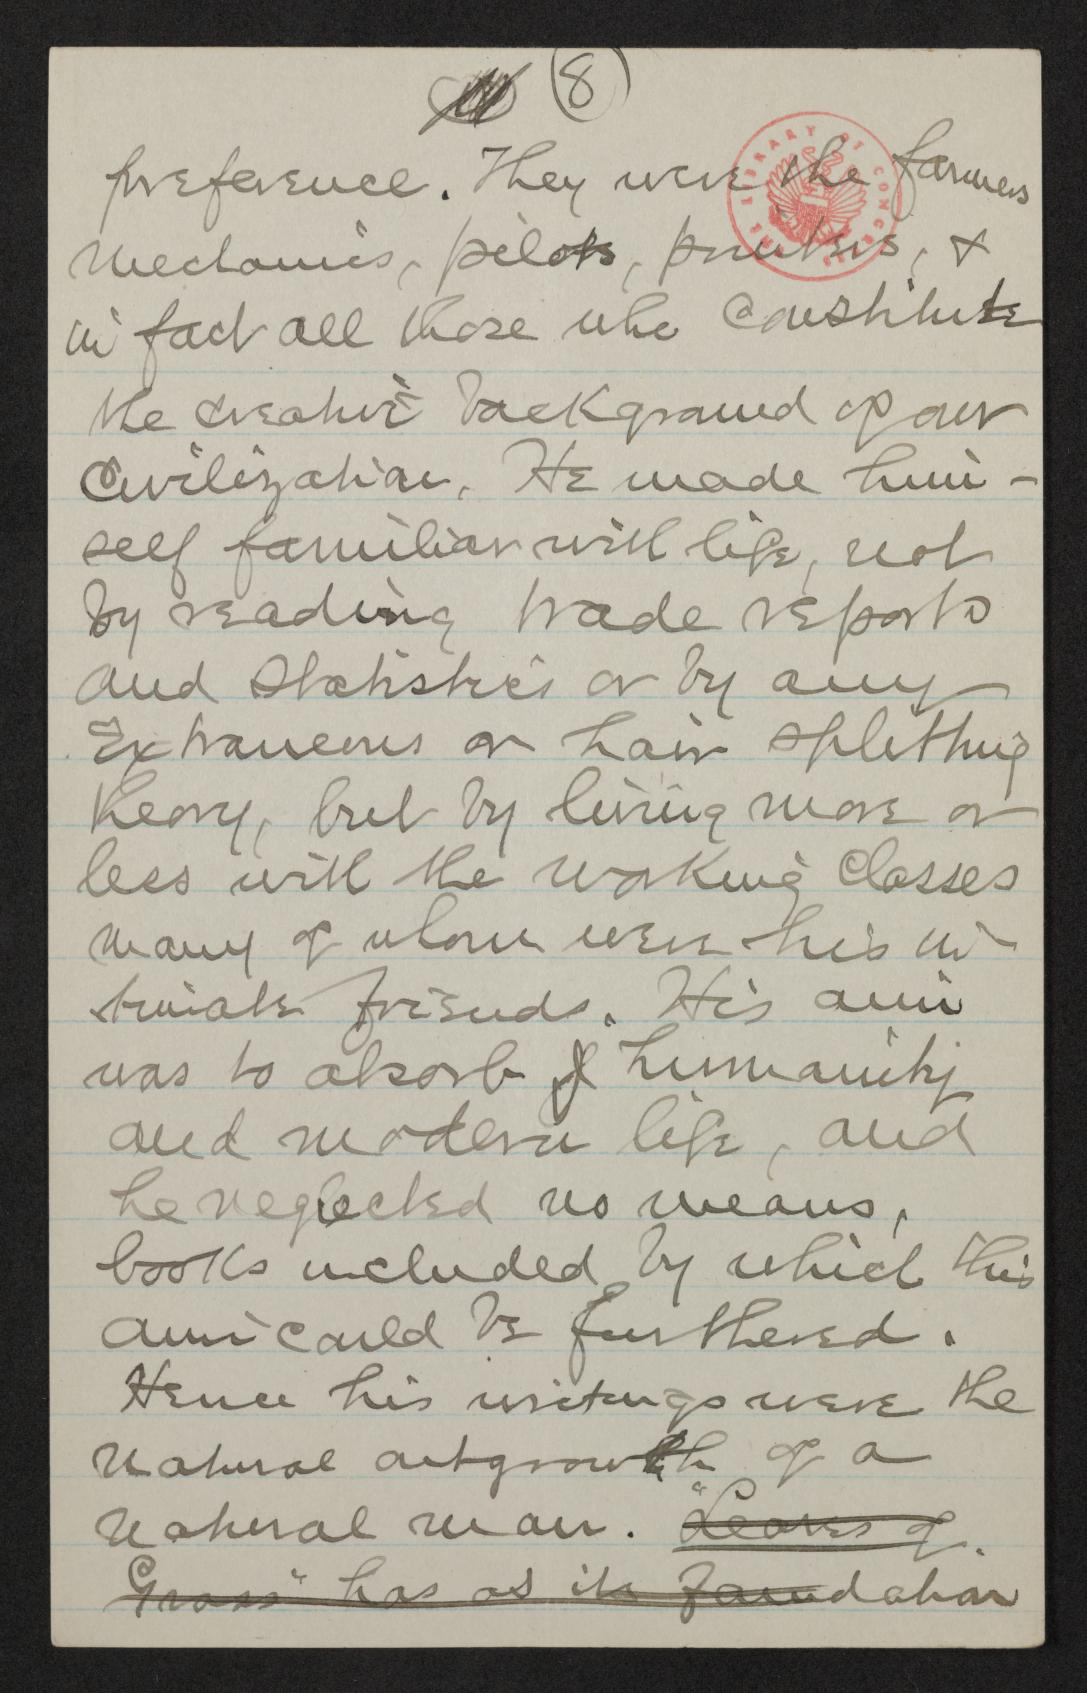 8
preference. They were the farmers
mechanics, pilots, printers, &
in fact all those who constitute
the creative background of our
civilization. He made him-
self familiar with life, not
by reading trade reports
and statistics or by any
extraneous or hair splitting
theory, but by living more or
less with the working classes
many of whom were his in-
timate friends. His aim
was to absorb humanity
and modern life, and
he neglected no means,
books included, by which this
aim could be furthered.
Hence his writings were the
natural outgrowth of a
natural man. "Leaves of
Grass" has as its foundation
THE LIBRARY OF CONGRESS